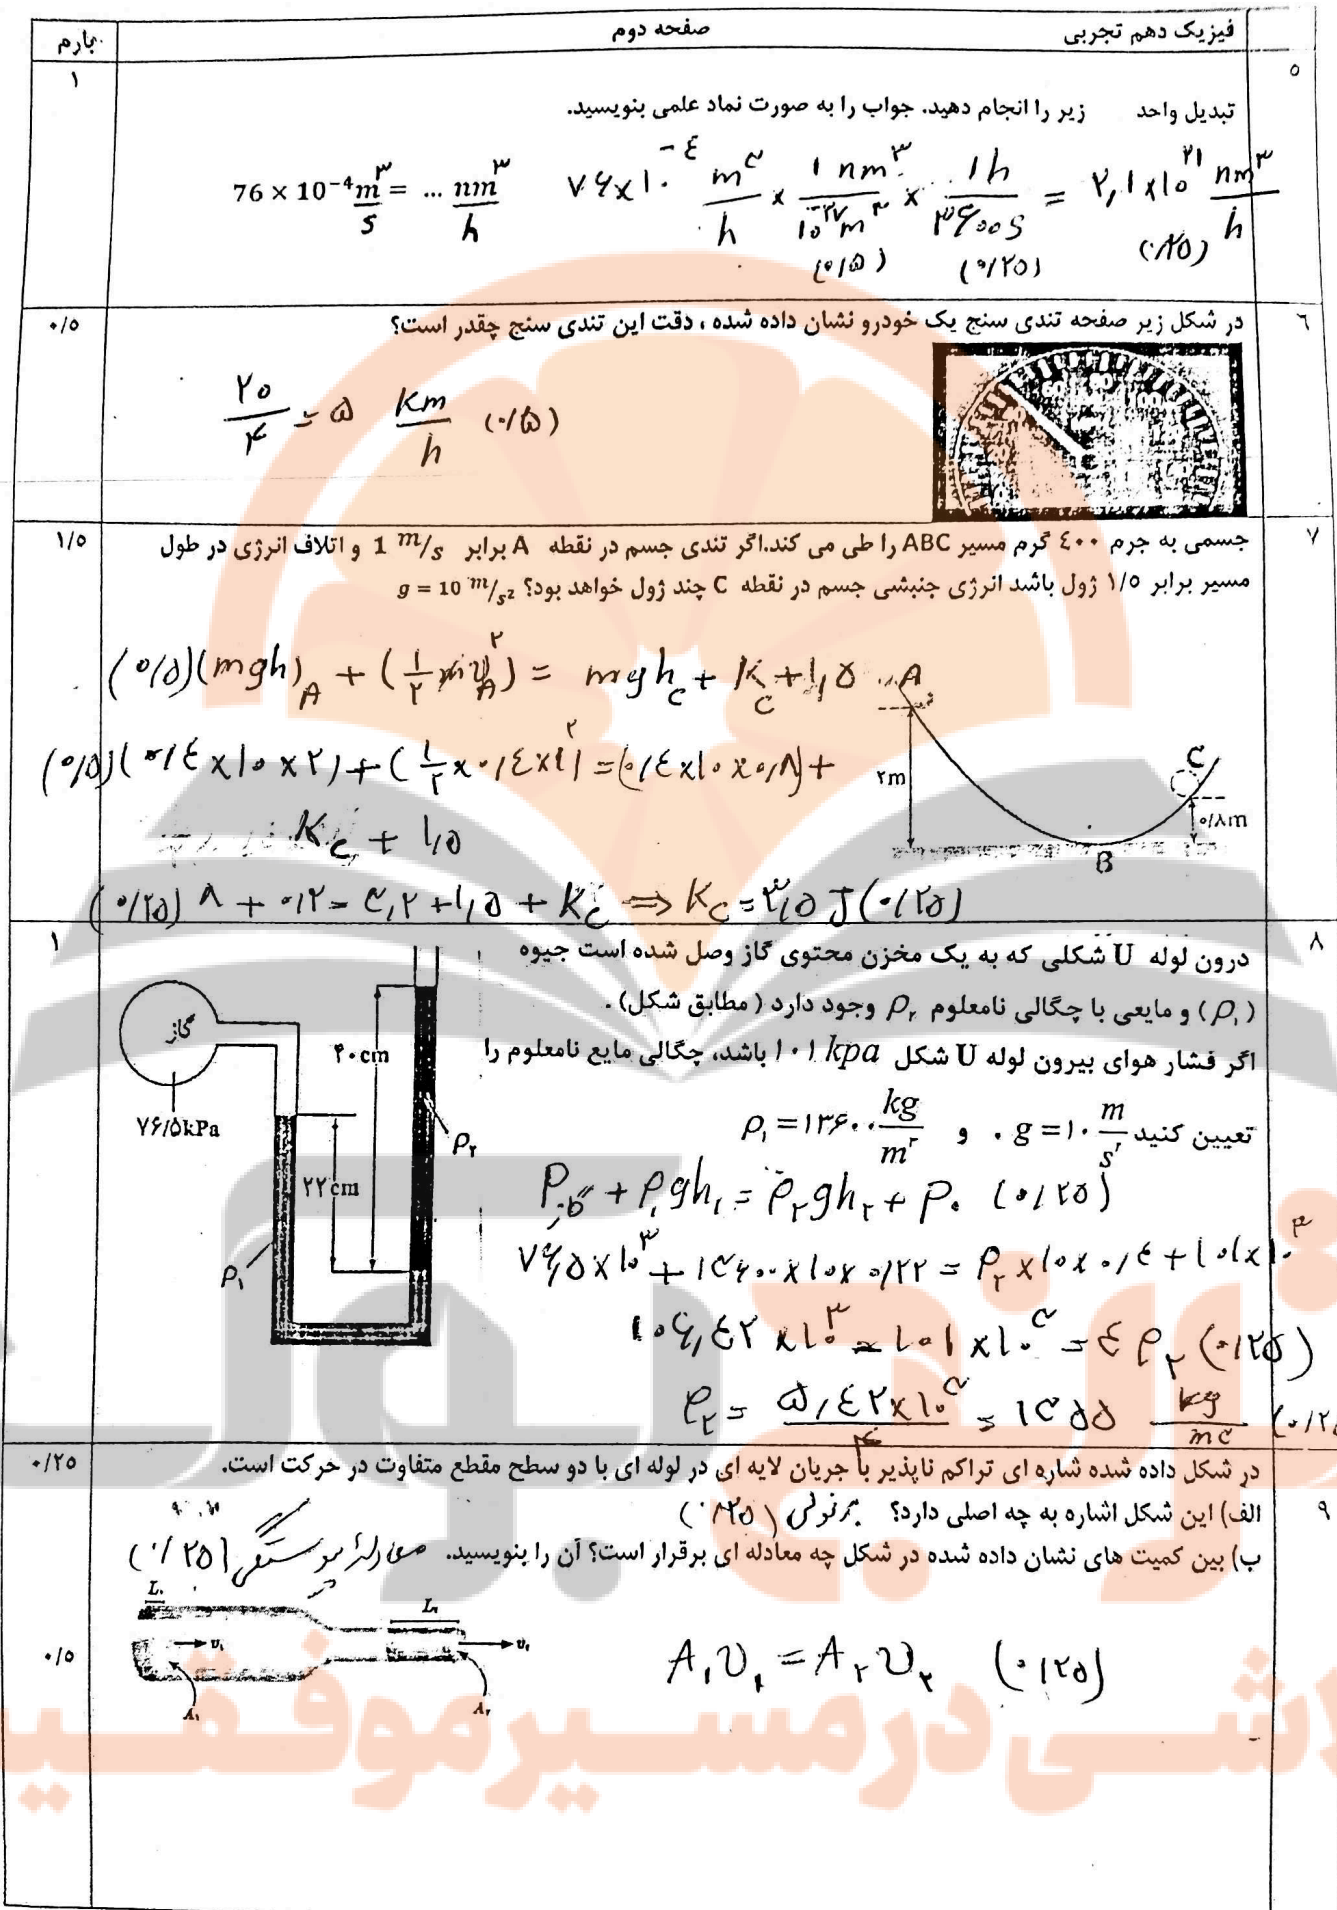 فیزیک دهم تجربی صفحه دوم بارم
۵
۱
تبدیل واحد زیر را انجام دهید. جواب را به صورت نماد علمی بنویسید.
76 × 10⁻⁴ m³/s = ... nm³/h
۷۶×۱۰⁻⁴ m³/h × 1 nm³/۱۰⁻²⁷m³ × 1h/۳۶۰۰s = ۲,۱×۱۰²¹ nm³/h
(۰/۵) (۰/۲۵) (۰/۲۵)
۶
۰/۵
در شکل زیر صفحه تندی سنج یک خودرو نشان داده شده ، دقت این تندی سنج چقدر است؟
۲۰/۴ = ۵ km/h (۰/۵)
۷
۱/۵
جسمی به جرم ۴۰۰ گرم مسیر ABC را طی می کند.اگر تندی جسم در نقطه A برابر 1 m/s و اتلاف انرژی در طول
مسیر برابر ۱/۵ ژول باشد انرژی جنبشی جسم در نقطه C چند ژول خواهد بود؟ g = 10 m/s²
(۰/۵)(mgh)A + (۱/۲ mv²A) = mghC + KC + ۱,۵
(۰/۵)(۰/۴×۱۰×۲)+(۱/۲×۰/۴×۱²)=(۰/۴×۱۰×۰/۸)+
KC + ۱,۵
(۰/۲۵) ۸ + ۰/۲ = ۳,۲ + ۱,۵ + KC ⇒ KC = ۳,۵ J (۰/۲۵)
A
۲m
C
۰/۸m
B
۸
۱
درون لوله U شکلی که به یک مخزن محتوی گاز وصل شده است جیوه
(ρ₁) و مایعی با چگالی نامعلوم ρ₂ وجود دارد ( مطابق شکل) .
اگر فشار هوای بیرون لوله U شکل ۱۰۱ kpa باشد، چگالی مایع نامعلوم را
تعیین کنید g = ۱۰ m/s² . و ρ₁ = ۱۳۶۰۰ kg/m³
گاز
۷۶/۵kPa
۴۰cm
۲۲cm
ρ₂
ρ₁
Pگاز + ρ₁gh₁ = ρ₂gh₂ + P₀ (۰/۲۵)
۷۶,۵×۱۰³ + ۱۳۶۰۰×۱۰×۰/۲۲ = ρ₂×۱۰×۰/۴ + ۱۰۱×۱۰³
۱۰۶,۴۲×۱۰³ − ۱۰۱×۱۰³ = ۴ρ₂ (۰/۲۵)
ρ₂ = ۵,۴۲×۱۰³/۴ = ۱۳۵۵ kg/m³ (۰/۲۵
۹
۰/۲۵
در شکل داده شده شاره ای تراکم ناپذیر با جریان لایه ای در لوله ای با دو سطح مقطع متفاوت در حرکت است.
الف) این شکل اشاره به چه اصلی دارد؟ برنولی (۰/۲۵)
ب) بین کمیت های نشان داده شده در شکل چه معادله ای برقرار است؟ آن را بنویسید. معادله پیوستگی (۰/۲۵)
۰/۵
L₁
L₂
v₁
v₂
A₁
A₂
A₁v₁ = A₂v₂ (۰/۲۵)